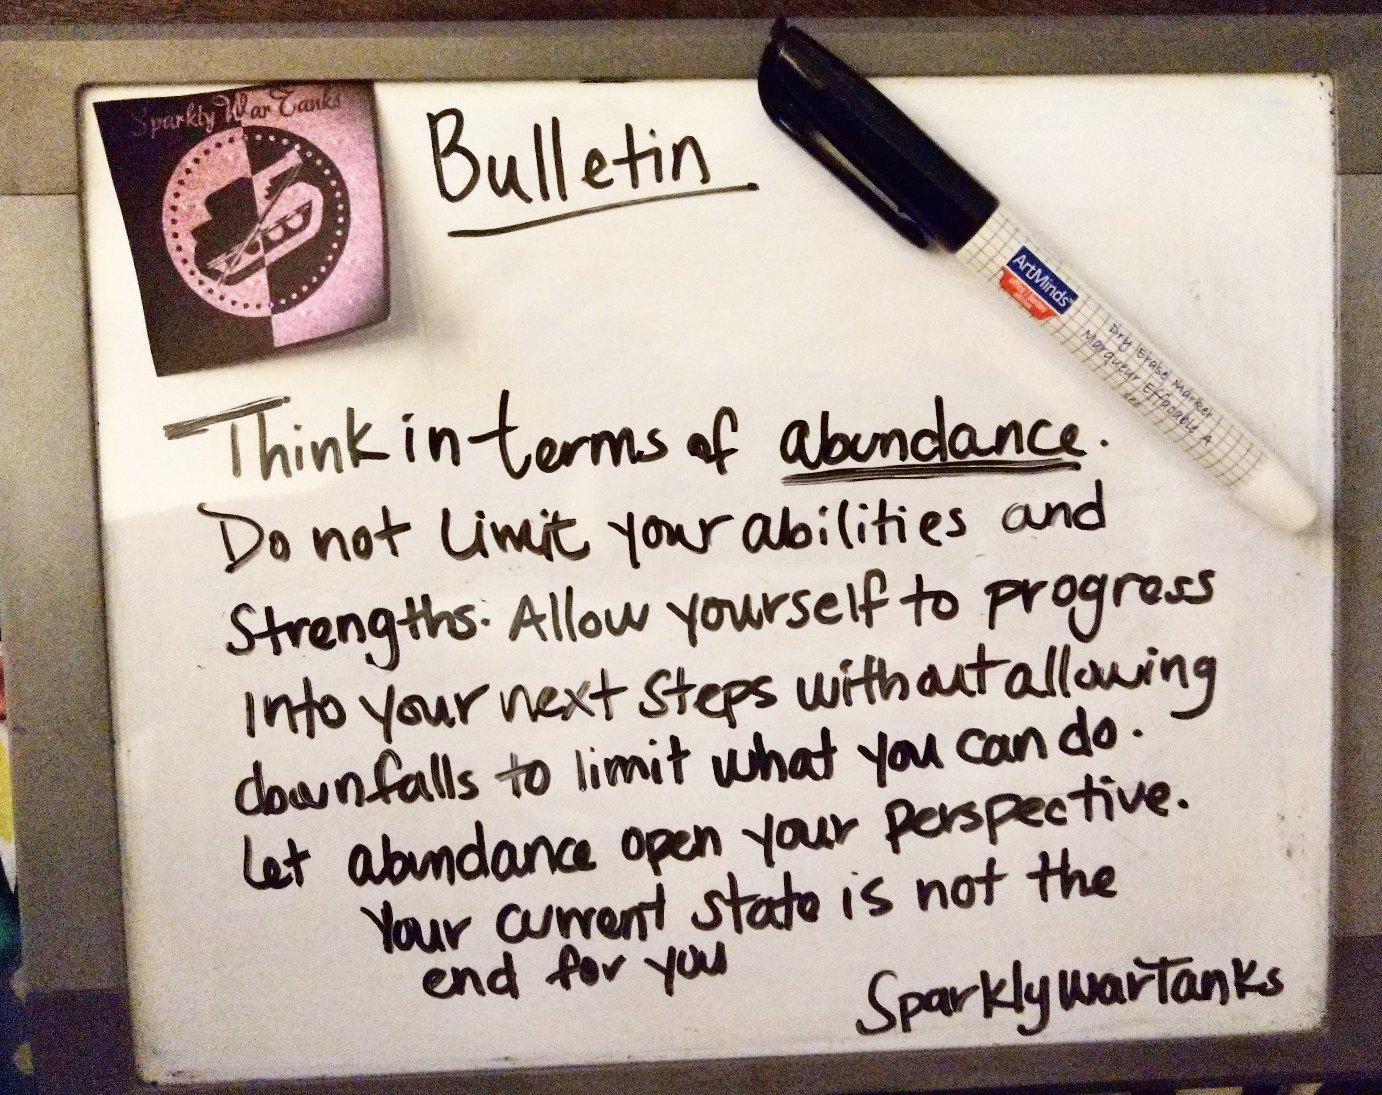 Sparkly War Tanks
Bulletin
ArtMinds
Dry Erase Marker
Marqueur Effaçable A
Think in terms of abundance.
Do not limit your abilities and
Strengths. Allow yourself to progress
into your next steps without allowing
downfalls to limit what you can do.
Let abundance open your perspective.
Your current state is not the
end for you
SparklyWarTanks